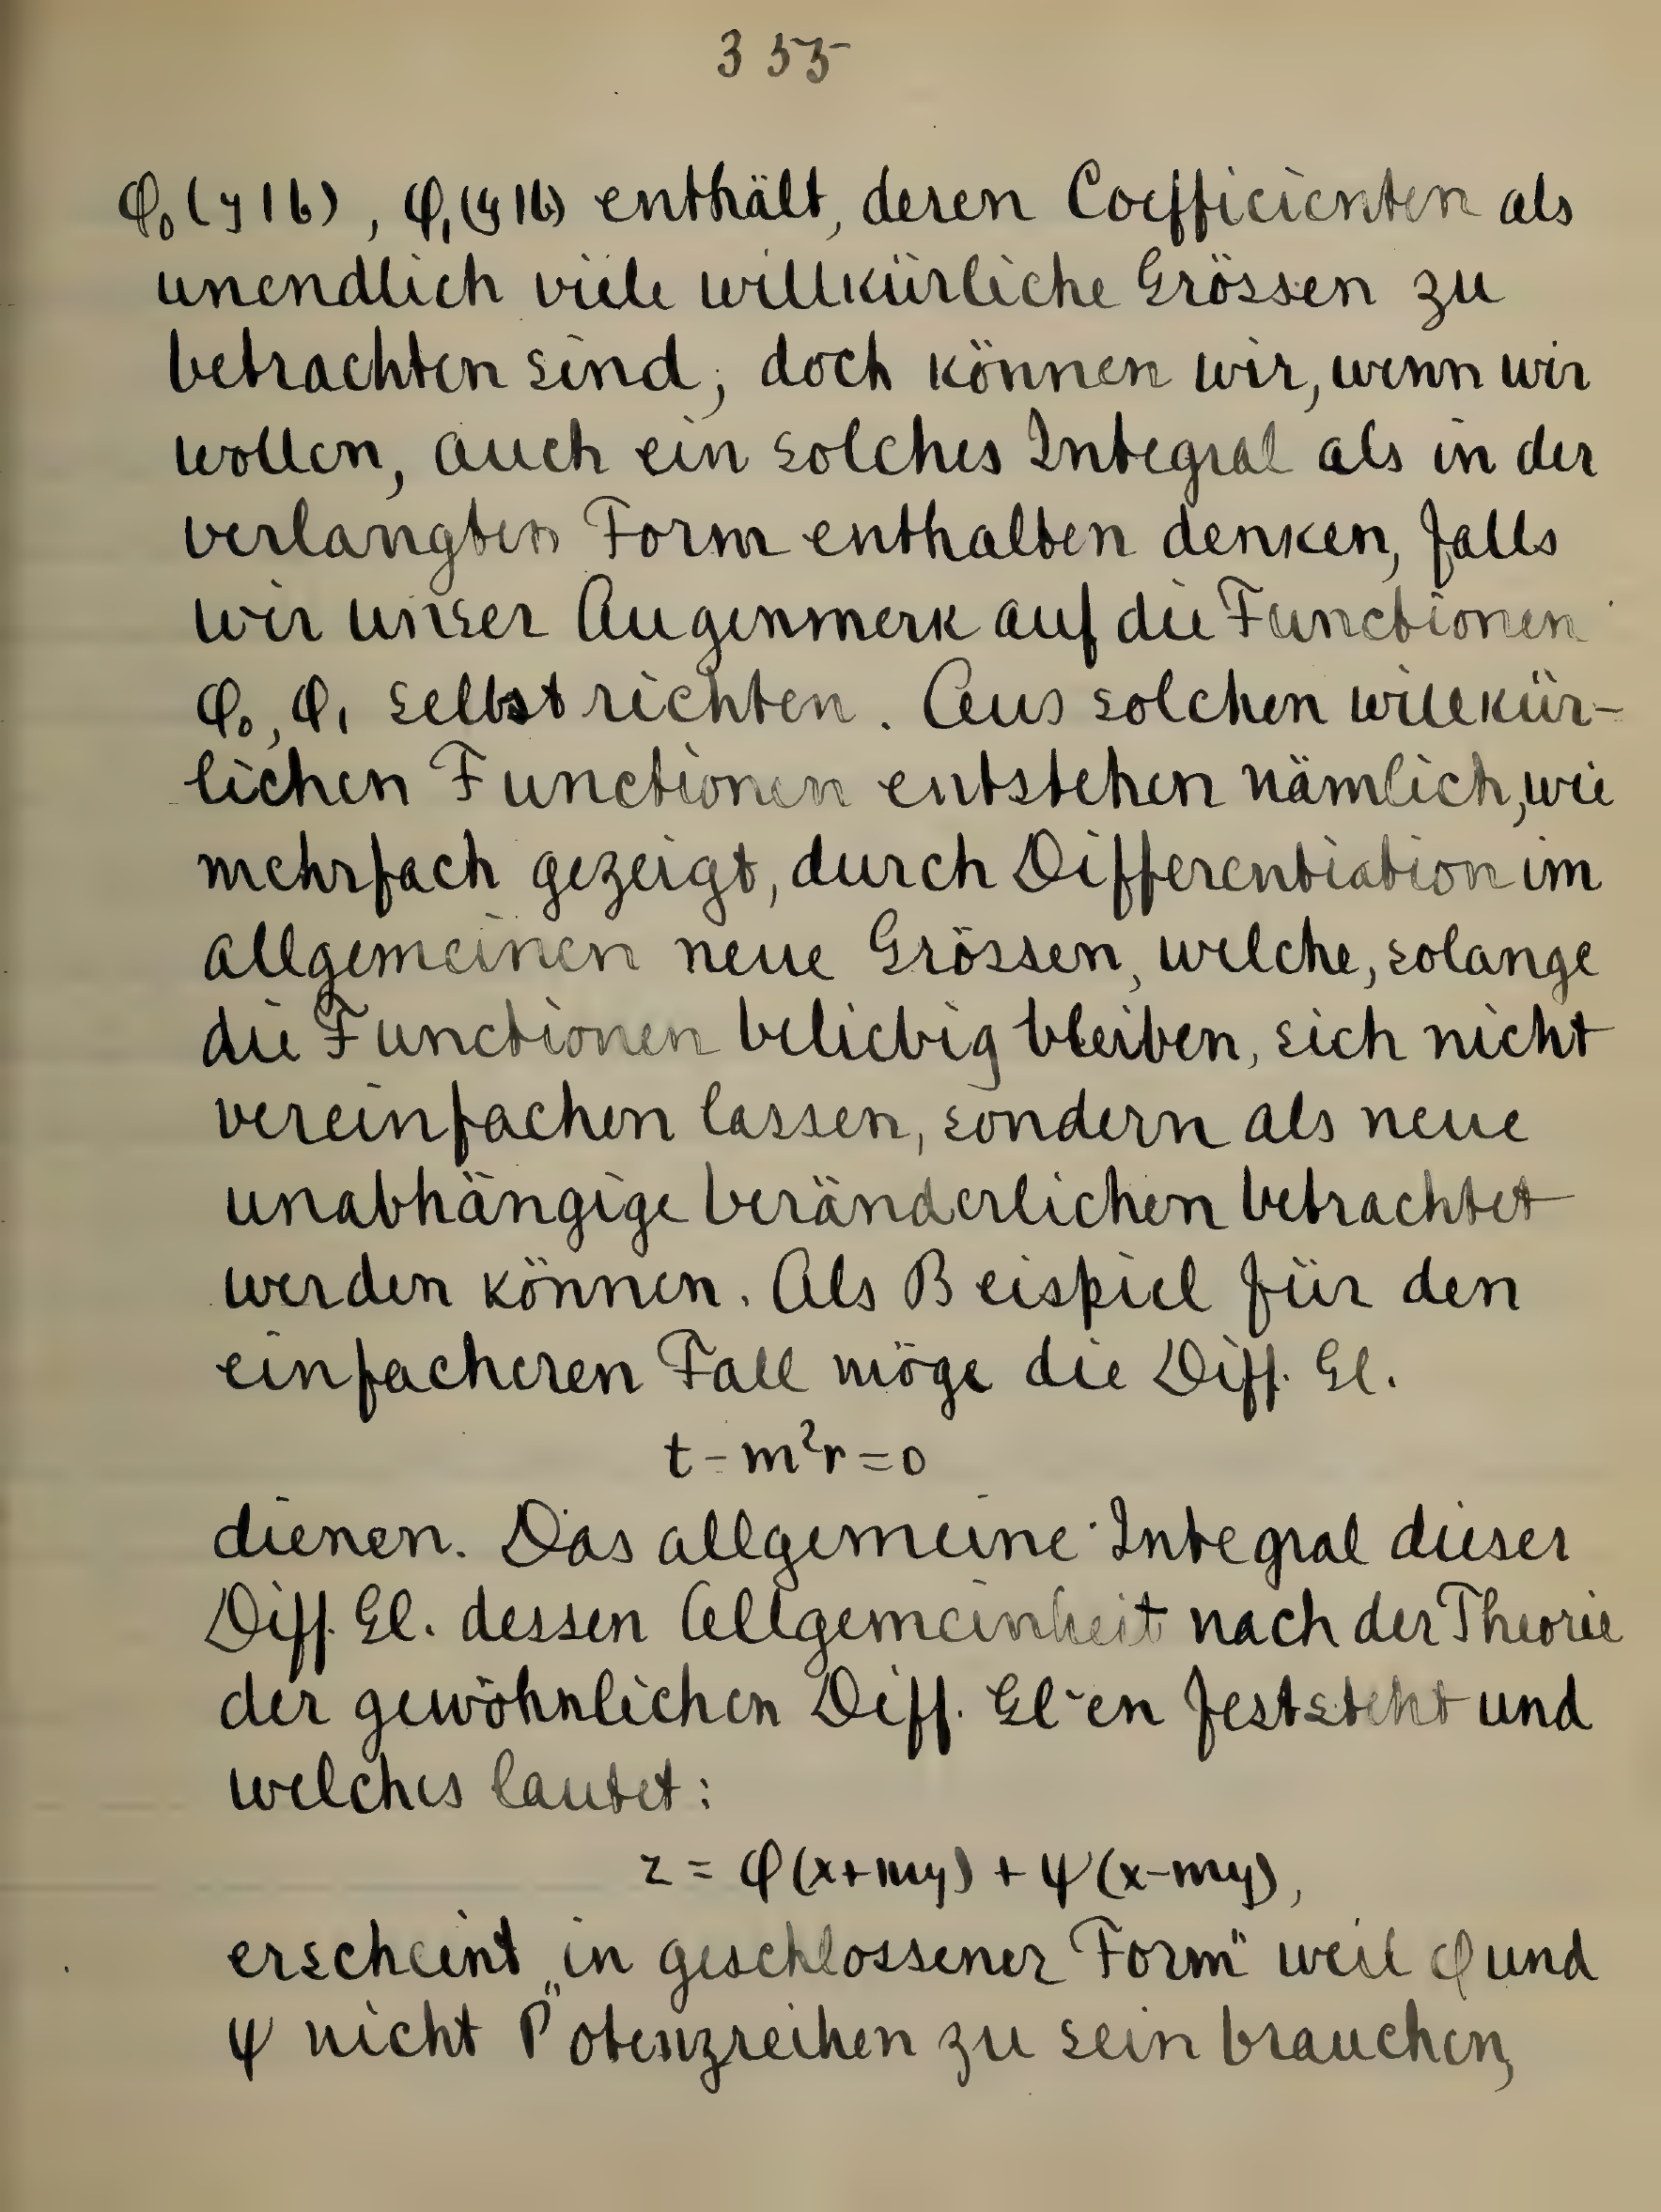 355
φ₀(y|b), φ₁(y|b) enthält, deren Coefficienten als
unendlich viele willkürliche Grössen zu
betrachten sind; doch können wir, wenn wir
wollen, auch ein solches Integral als in der
verlangten Form enthalten denken, falls
wir unser Augenmerk auf die Functionen
φ₀, φ₁ selbst richten. Aus solchen willkür-
lichen Functionen entstehen nämlich, wie
mehrfach gezeigt, durch Differentiation im
allgemeinen neue Grössen, welche, solange
die Functionen beliebig bleiben, sich nicht
vereinfachen lassen, sondern als neue
unabhängige Veränderlichen betrachtet
werden können. Als Beispiel für den
einfacheren Fall möge die Diff. Gl.
t - m²r = 0
dienen. Das allgemeine Integral dieser
Diff. Gl. dessen Allgemeinheit nach der Theorie
der gewöhnlichen Diff. Gl-en feststeht und
welches lautet:
z = φ(x+my) + ψ(x-my),
erscheint „in geschlossener Form" weil φ und
ψ nicht Potenzreihen zu sein brauchen,